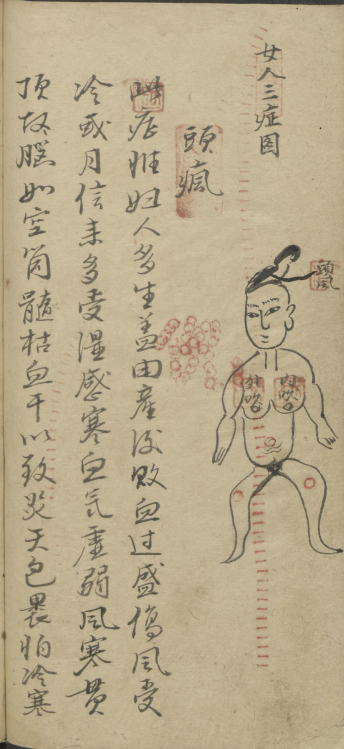 女人三症图
頭瘋
頭風
内吹
外吹
此症惟妇人多生盖由産後败血过盛傷风受
冷或月信来多受湿感寒血气虚弱风寒贯
顶故腦如空筒髓枯血干以致炎天包裹怕冷寒